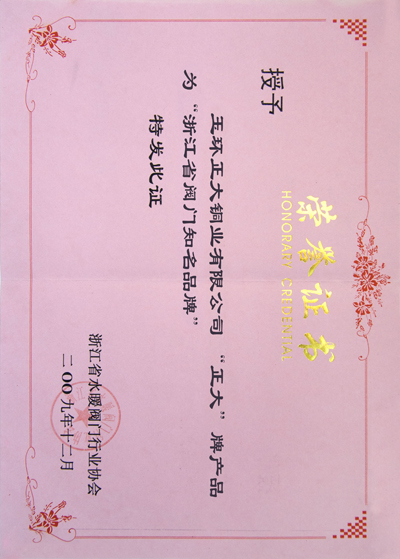 荣誉证书
HONORARY CREDENTIAL
授予
玉环正大铜业有限公司“正大”牌产品
为“浙江省阀门知名品牌”
特发此证
浙江省水暖阀门行业协会
二〇〇九年十二月